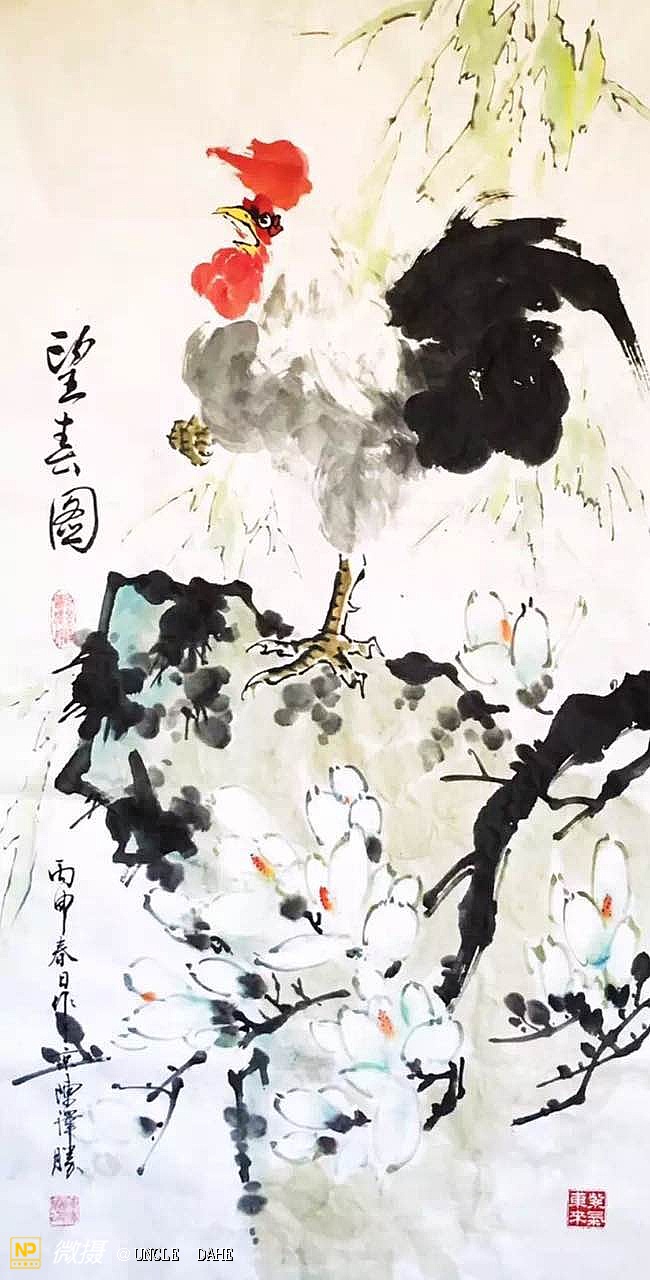 望春图
丙申春日作 陳澤勝
紫氣東來
NP 微摄 © UNCLE DAHE